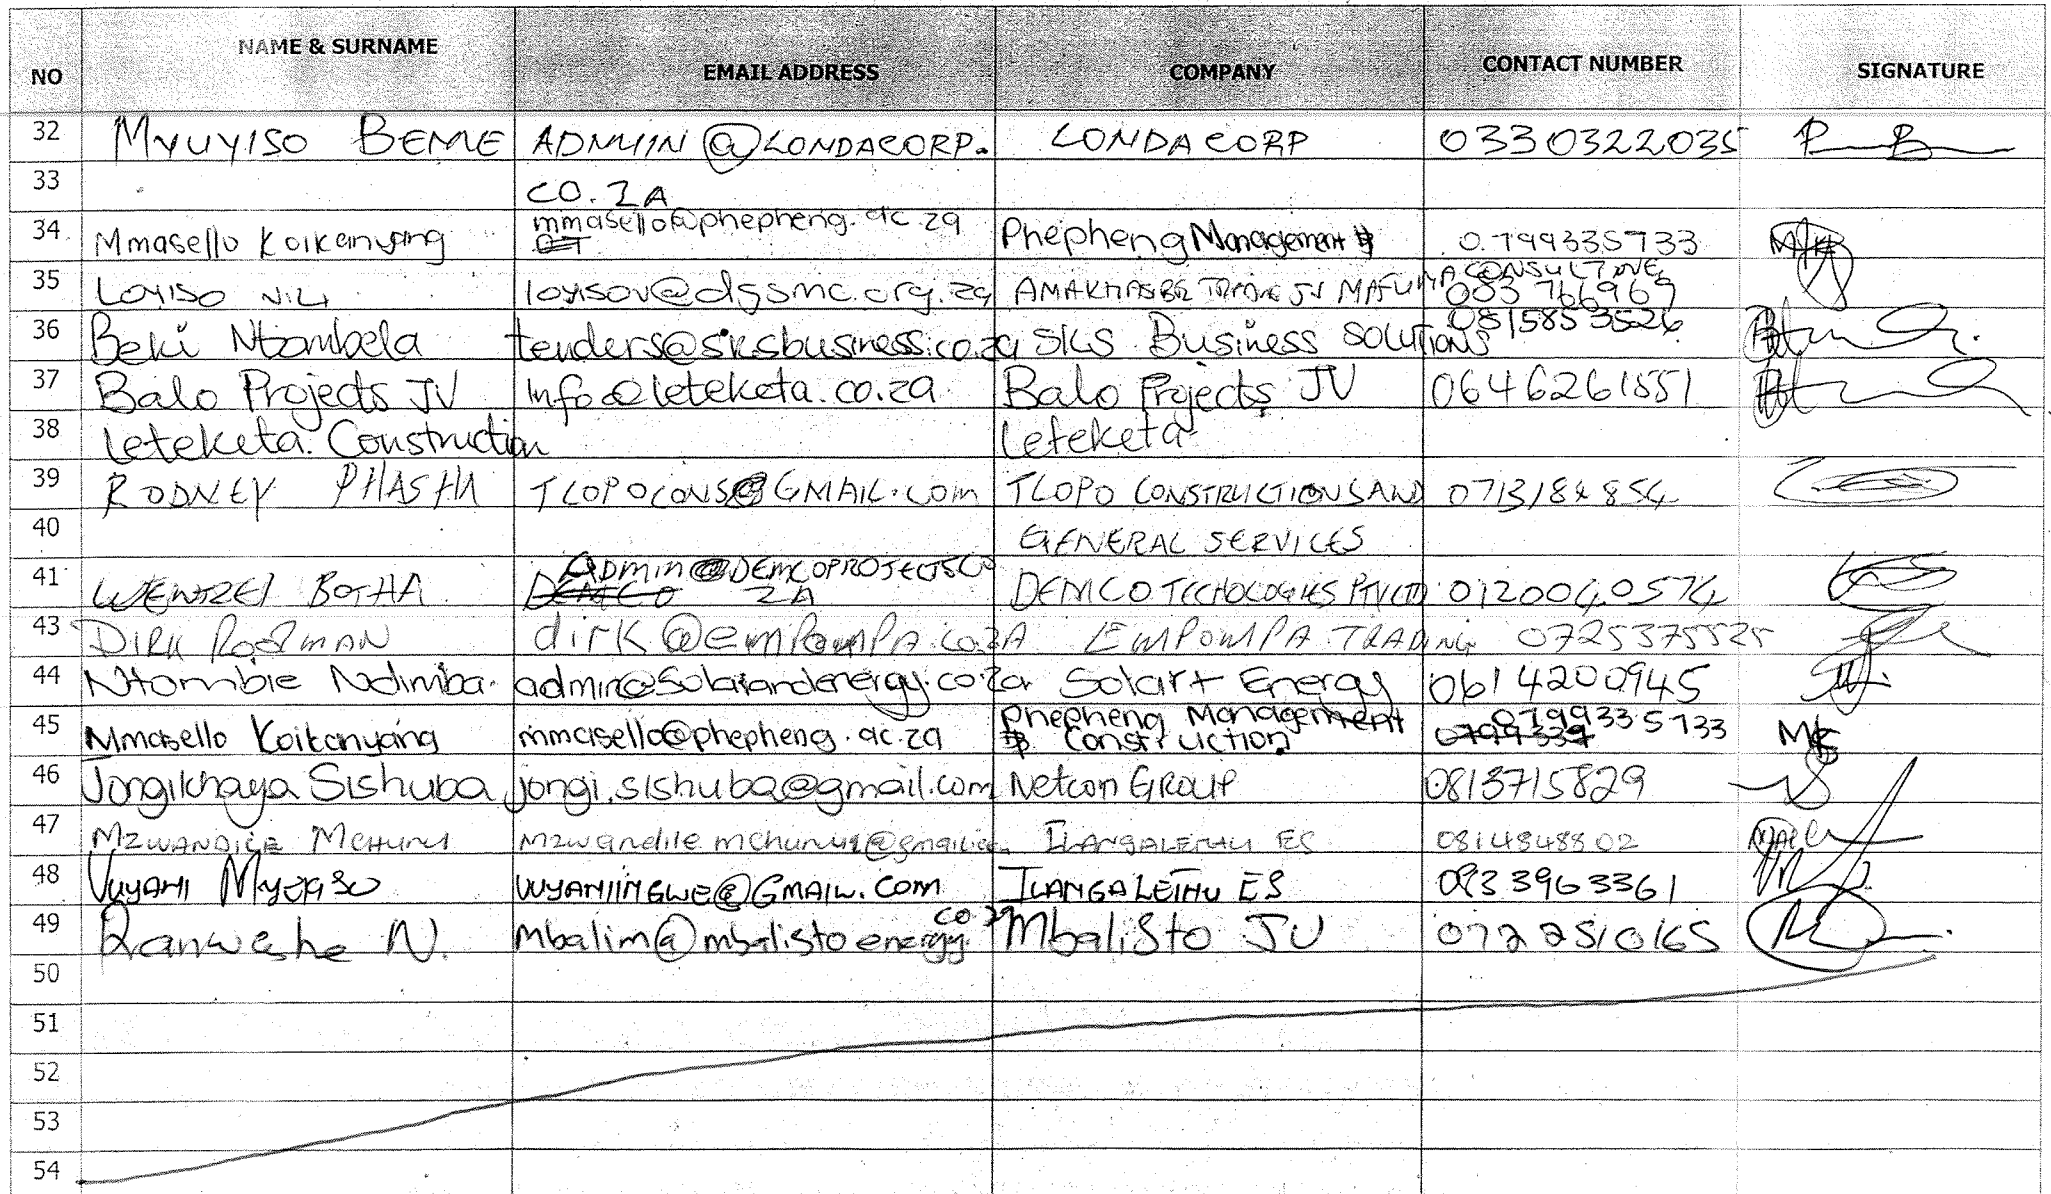 NO NAME & SURNAME EMAIL ADDRESS COMPANY CONTACT NUMBER SIGNATURE
32 MYUYISO BEME ADMIN@LONDACORP. LONDA CORP 0330322035
33 CO.ZA
34 Mmasello Koikanyang mmasello@phepheng.ac.za Phepheng Management 0799335733
35 LOYISO loyisov@dgsmc.org.za JV CONSULTING 083 766969
36 Beki Ntombela tenders@sksbusiness.co.za SKS Business SOLUTIONS 0815853526
37 Balo Projects JV Info@leteketa.co.za Balo Projects JV 0646261551
38 Leteketa Construction Leteketa
39 RODNEY PHASHA TLOPOCONS@GMAIL.COM TLOPO CONSTRUCTIONS AND 0713184854
40 GENERAL SERVICES
41 WENTZEL BOTHA Admin@DEMCOPROJECTS.CO ZA DEMCO 0120040574
43 DIRK dirk@empompa.co.za LEMPOMPA TRADING 0725375525
44 Ntombie Ndimba. Solart Energy 0614200945
45 Mmasello Koikanyang mmasello@phepheng.ac.za Phepheng Management Construction 0799335733
46 Jongikhaya Sishuba jongi.sishuba@gmail.com Netcon GROUP 0813715829
47 MZWANDILE MCHUNU ILANGALETHU ES 0814848802
48 VUYANI VUYANIINGWE@GMAIL.COM ILANGALETHU ES 0833963361
49 Ranwashe N. Mbalim@mbalistoenergy.co.za Mbalisto JV 0722510165
50
51
52
53
54